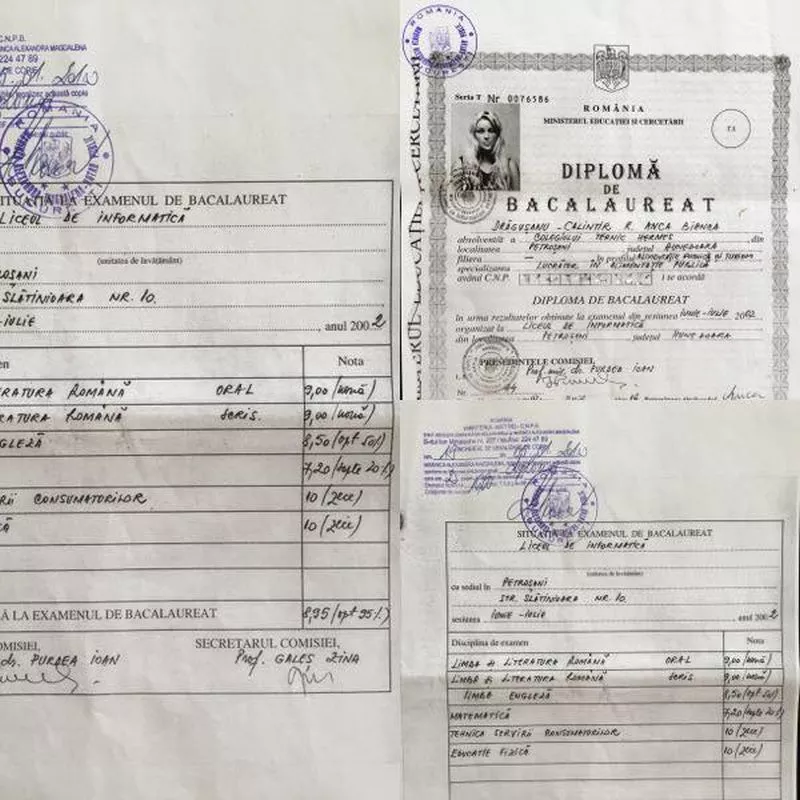 C.N.P.B.
ALEXANDRA MAGDALENA
224 47 89
ROMÂNIA
SITUAŢIA LA EXAMENUL DE BACALAUREAT
LICEUL DE INFORMATICĂ
(unitatea de învăţământ)
ROŞANI
SLĂTINIOARA NR. 10.
-IULIE , anul 2002
en Nota
RATURA ROMÂNĂ ORAL 9,00 (nouă)
RATURA ROMÂNĂ SCRIS. 9,00 (nouă)
GLEZĂ 8,50 (opt 50%)
7,20 (şapte 20%)
RII CONSUMATORILOR 10 (zece)
CĂ 10 (zece)
Ă LA EXAMENUL DE BACALAUREAT 8,95 (opt 95%)
OMISIEI, SECRETARUL COMISIEI,
dr. PURDEA IOAN Prof. GALEŞ ZINA
ROMÂNIA
Seria T Nr 0076586
ROMÂNIA
MINISTERUL EDUCAŢIEI ŞI CERCETĂRII
T.S
DIPLOMĂ
DE
BACALAUREAT
DRĂGUŞANU - CALINTIR R. ANCA BIANCA
absolventă a COLEGIULUI TEHNIC HERMES din
localitatea PETROŞANI judeţul HUNEDOARA
filiera — profilul ALIMENTAŢIE PUBLICĂ ŞI TURISM
specializarea LUCRĂTOR ÎN ALIMENTAŢIE PUBLICĂ
având C.N.P. i se acordă
DIPLOMA DE BACALAUREAT
în urma rezultatelor obţinute la examenul din sesiunea IUNIE - IULIE 2002
organizat la LICEUL DE INFORMATICĂ
din localitatea PETROŞANI judeţul HUNEDOARA
PREŞEDINTELE COMISIEI,
Prof. univ. dr. PURDEA IOAN
Nr
ROMÂNIA
MINISTERUL JUSTIŢIEI - C.N.P.B.
224 47 89
SITUAŢIA LA EXAMENUL DE BACALAUREAT
LICEUL DE INFORMATICĂ
(unitatea de învăţământ)
cu sediul în PETROŞANI
STR. SLĂTINIOARA NR. 10.
sesiunea IUNIE - IULIE , anul 2002
Disciplina de examen Nota
LIMBA ŞI LITERATURA ROMÂNĂ ORAL 9,00 (nouă)
LIMBA ŞI LITERATURA ROMÂNĂ SCRIS 9,00 (nouă)
LIMBA ENGLEZĂ 8,50 (opt 50%)
MATEMATICĂ 7,20 (şapte 20%)
TEHNICA SERVIRII CONSUMATORILOR 10 (zece)
EDUCAŢIE FIZICĂ 10 (zece)